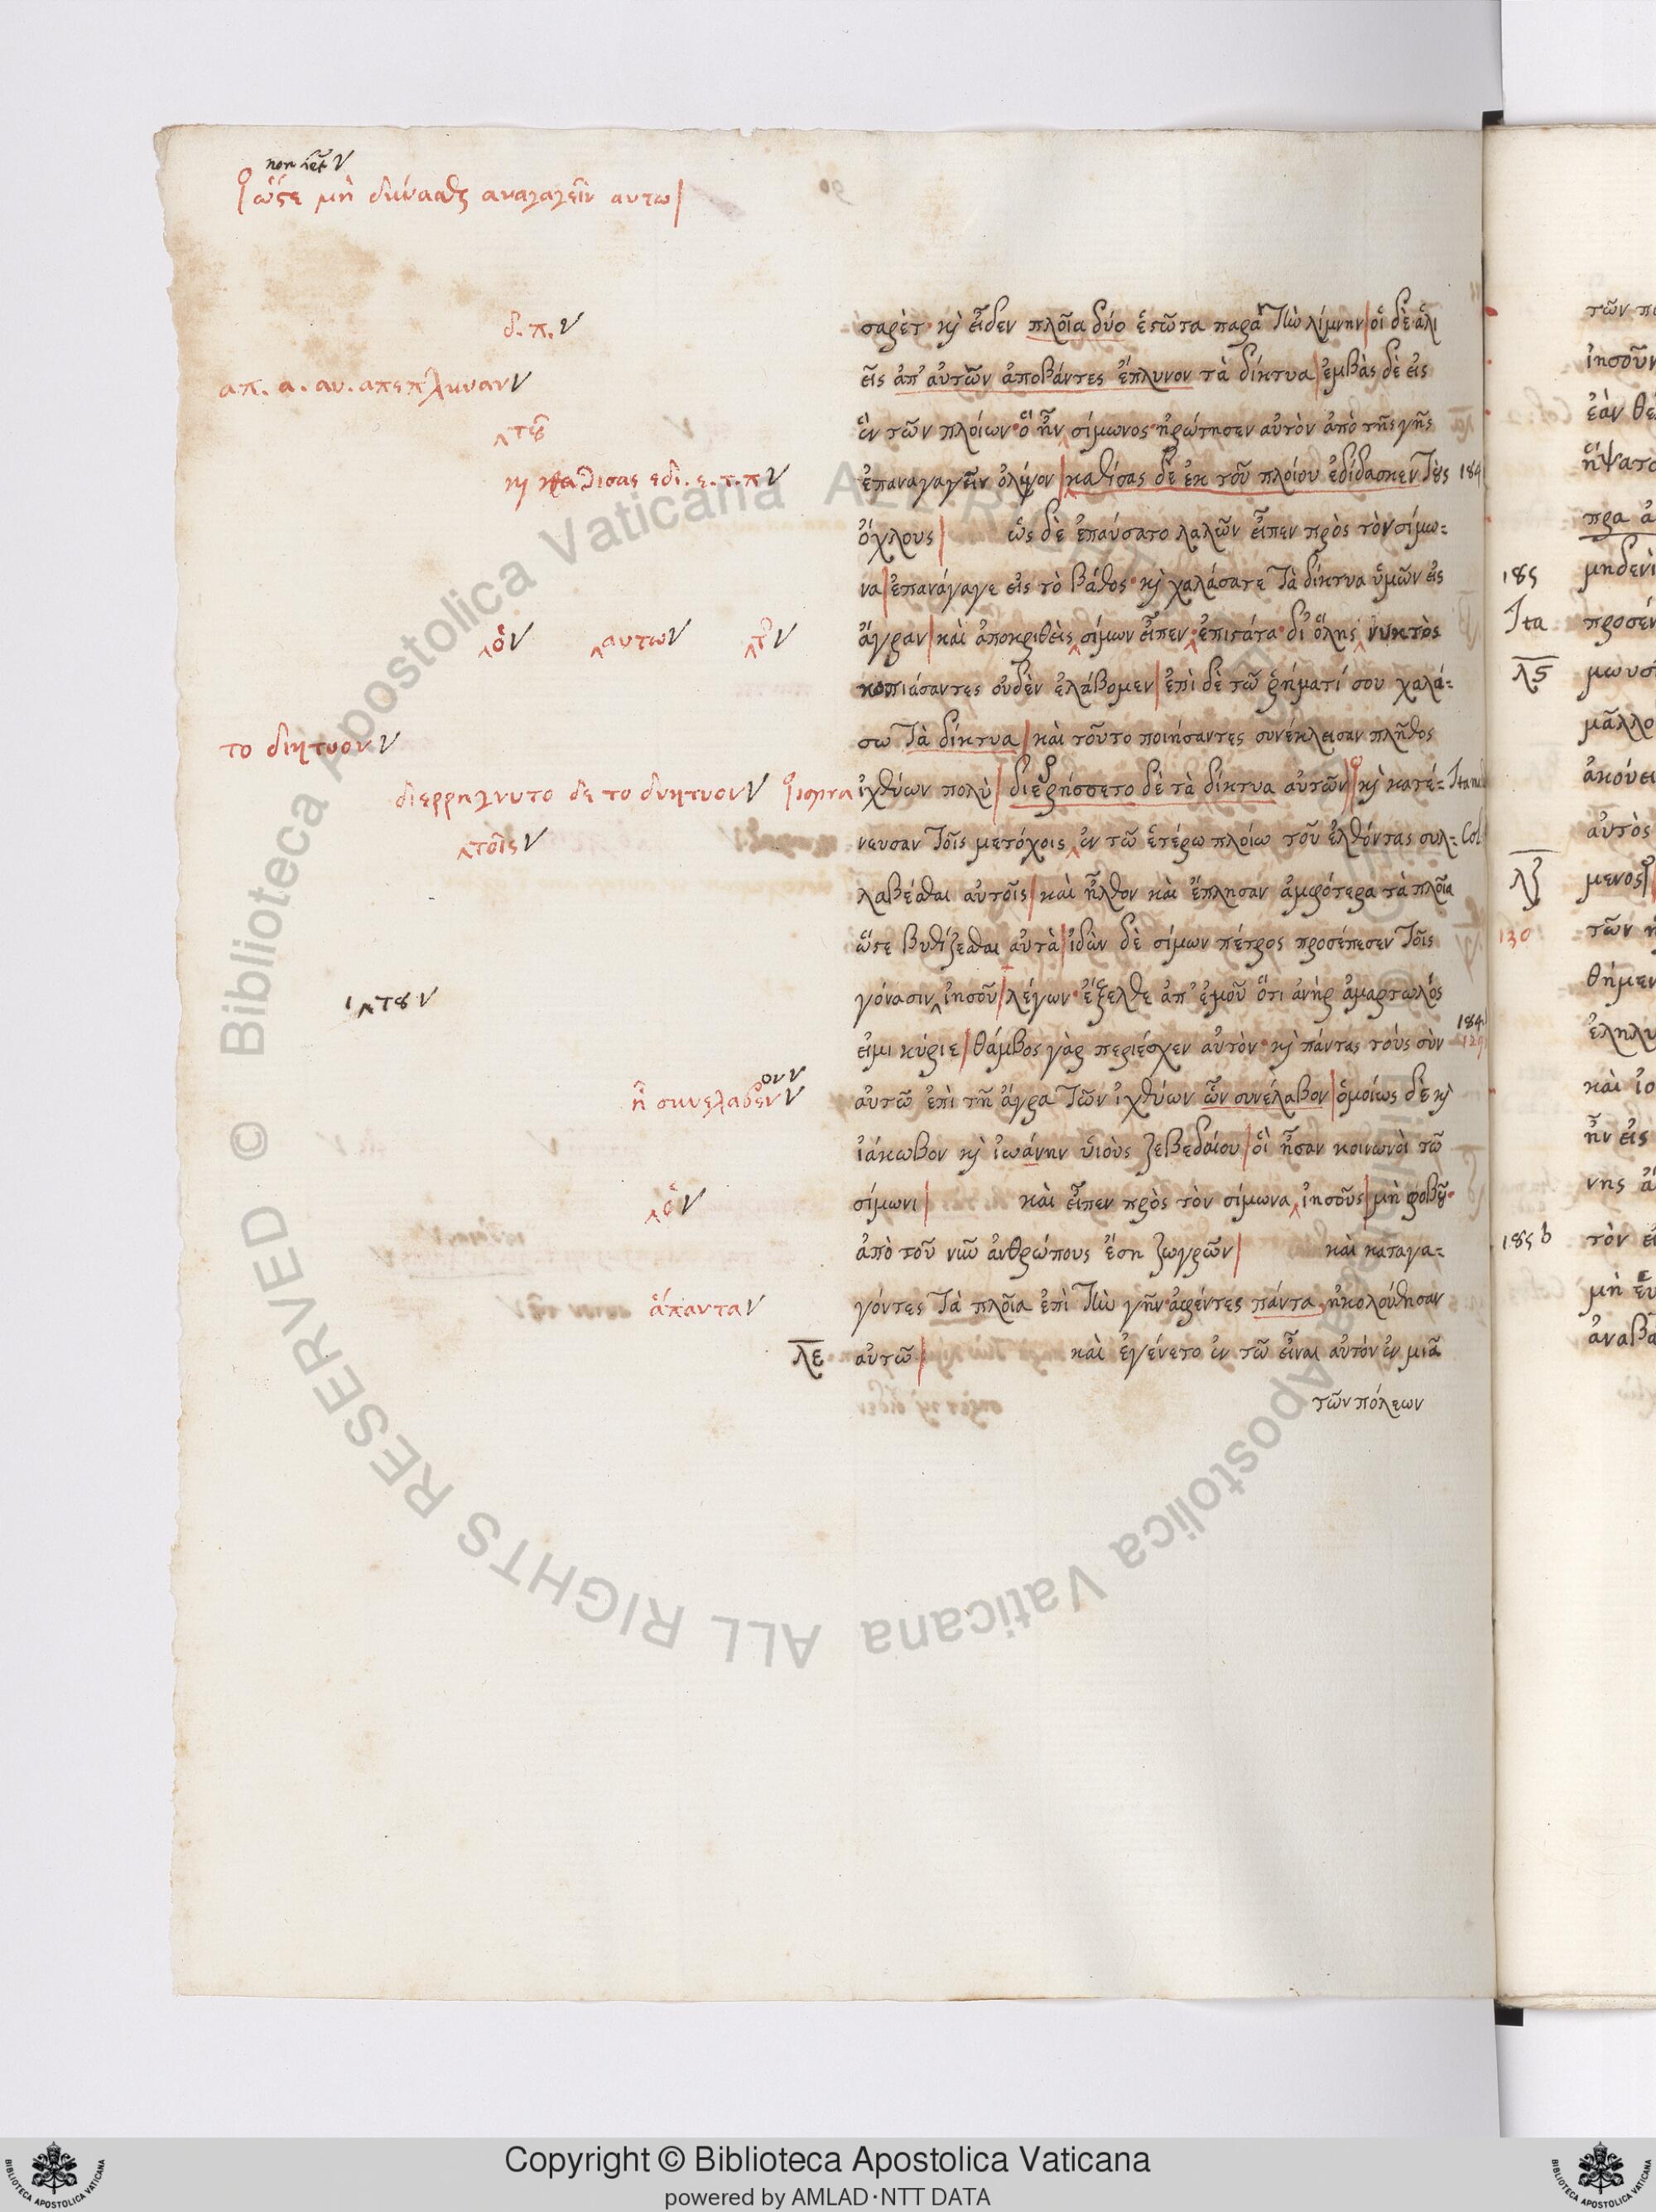 non het V
ὥστε μὴ δύνασθαι αναγαγεῖν αυτω
δ. π. V
σαρὲτ· κỳ εἶδεν πλοῖα δύο ἑστῶτα παρὰ τὴν λίμνην| οἱ δὲ ἁλι
απ. α. αυ. απεπλυναν V
εῖς ἀπ' αὐτῶν ἀποβάντες ἔπλυνον τὰ δίκτυα| ἐμβὰς δὲ εἰς
‸τοῦ
ἓν τῶν πλοίων· ὃ ἦν ‸ σίμωνος· ἠρώτησεν αὐτὸν ἀπὸ τῆς γῆς
κỳ καθισας εδι. ε. τ. π V
ἐπαναγαγεῖν ὀλίγον| καθίσας δὲ ἐκ τοῦ πλοίου ἐδίδασκεν τοὺς 184
ὄχλους| ὡς δὲ ἐπαύσατο λαλῶν εἶπεν πρὸς τὸν σίμω-
να| ἐπανάγαγε εἰς τὸ βάθος· κỳ χαλάσατε τὰ δίκτυα ὑμῶν εἰς
‸ὁ V ‸αυτω V ‸τ V
ἄγραν| καὶ ἀποκριθεὶς ‸ σίμων εἶπεν ‸ ἐπιστάτα· δι' ὅλης ‸ νυκτὸς
κοπιάσαντες οὐδὲν ἐλάβομεν| ἐπὶ δὲ τῶ ῥήματί σου χαλά-
το δικτυον V
σω τὰ δίκτυα| καὶ τοῦτο ποιήσαντες συνέκλεισαν πλῆθος
διερρηγνυτο δε το δικτυον V
ἰχθύων πολὺ| διερήσσετο δὲ τὰ δίκτυα αὐτῶν| κỳ κατέ-
‸τοῖς V
νευσαν τοῖς μετόχοις ‸ ἐν τῶ ἑτέρω πλοίω τοῦ ἐλθόντας συλ- Col
λαβέσθαι αὐτοῖς| καὶ ἦλθον καὶ ἔπλησαν ἀμφότερα τὰ πλοῖα
ὥστε βυθίζεσθαι αὐτὰ| ἰδὼν δὲ σίμων πέτρος προσέπεσεν τοῖς
‸του V
γόνασιν ‸ ἰησοῦ| λέγων· ἔξελθε ἀπ' ἐμοῦ ὅτι ἀνὴρ ἁμαρτωλός
184
εἰμι κύριε| θάμβος γὰρ περιέσχεν αὐτὸν· κỳ πάντας τοὺς σὺν 129
ον V
ἧ συνελαβεν V
αὐτῶ ἐπὶ τῆ ἄγρα τῶν ἰχθύων ὧν συνέλαβον| ὁμοίως δὲ κỳ
ἰάκωβον κỳ ἰωάνην ὑιοὺς ζεβεδαίου| οἳ ἦσαν κοινωνοὶ τῶ
‸ὁ V
σίμωνι| καὶ εἶπεν πρὸς τὸν σίμωνα ‸ ἰησοῦς| μὴ φοβοῦ·
ἀπὸ τοῦ νῦν ἀνθρώπους ἔση ζωγρῶν| καὶ καταγα-
ἅπαντα V
γόντες τὰ πλοῖα ἐπὶ τὴν γῆν· ἀφέντες πάντα ἠκολούθησαν
λε αὐτῶ| καὶ ἐγένετο ἐν τῶ εἶναι αὐτόν ἐν μιᾶ
τῶν πόλεων
ἰησοῦν
ἐὰν θέ
ἥψατο
πρα
185 μηδενὶ
Ita προσέν
λς μωυσ
μᾶλλο
ἀκούει
αὐτὸς
λζ μενος
130 τῶν
θήμεν
ἐληλυ
καὶ ἰσ
ἦν εἰς
νης
185 b τὸν
μὴ
ἀναβα
© Biblioteca Apostolica Vaticana ALL RIGHTS RESERVED
Copyright © Biblioteca Apostolica Vaticana
powered by AMLAD·NTT DATA